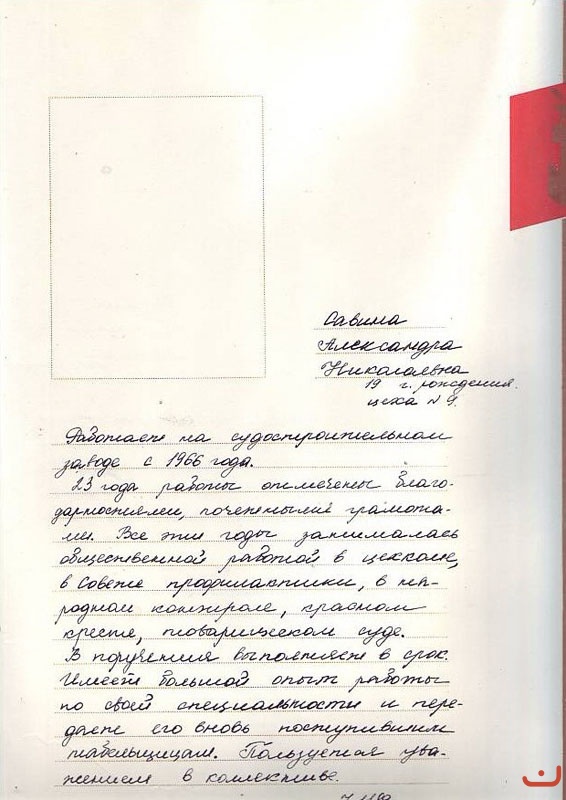 Савина
Александра
Николаевна
19 г. рождения.
цеха N 9.
Работает на судостроительном
заводе с 1966 года.
23 года работы отмечены благо-
дарностями, почетными грамота-
ми. Все эти годы занималась
общественной работой в цехкоме,
в Совете профилактики, в на-
родном контроле, красном
кресте, товарищеском суде.
В поручения выполняет в срок.
Имеет большой опыт работы
по своей специальности и пере-
дает его вновь поступившим
табельщицам. Пользуется ува-
жением в коллективе.